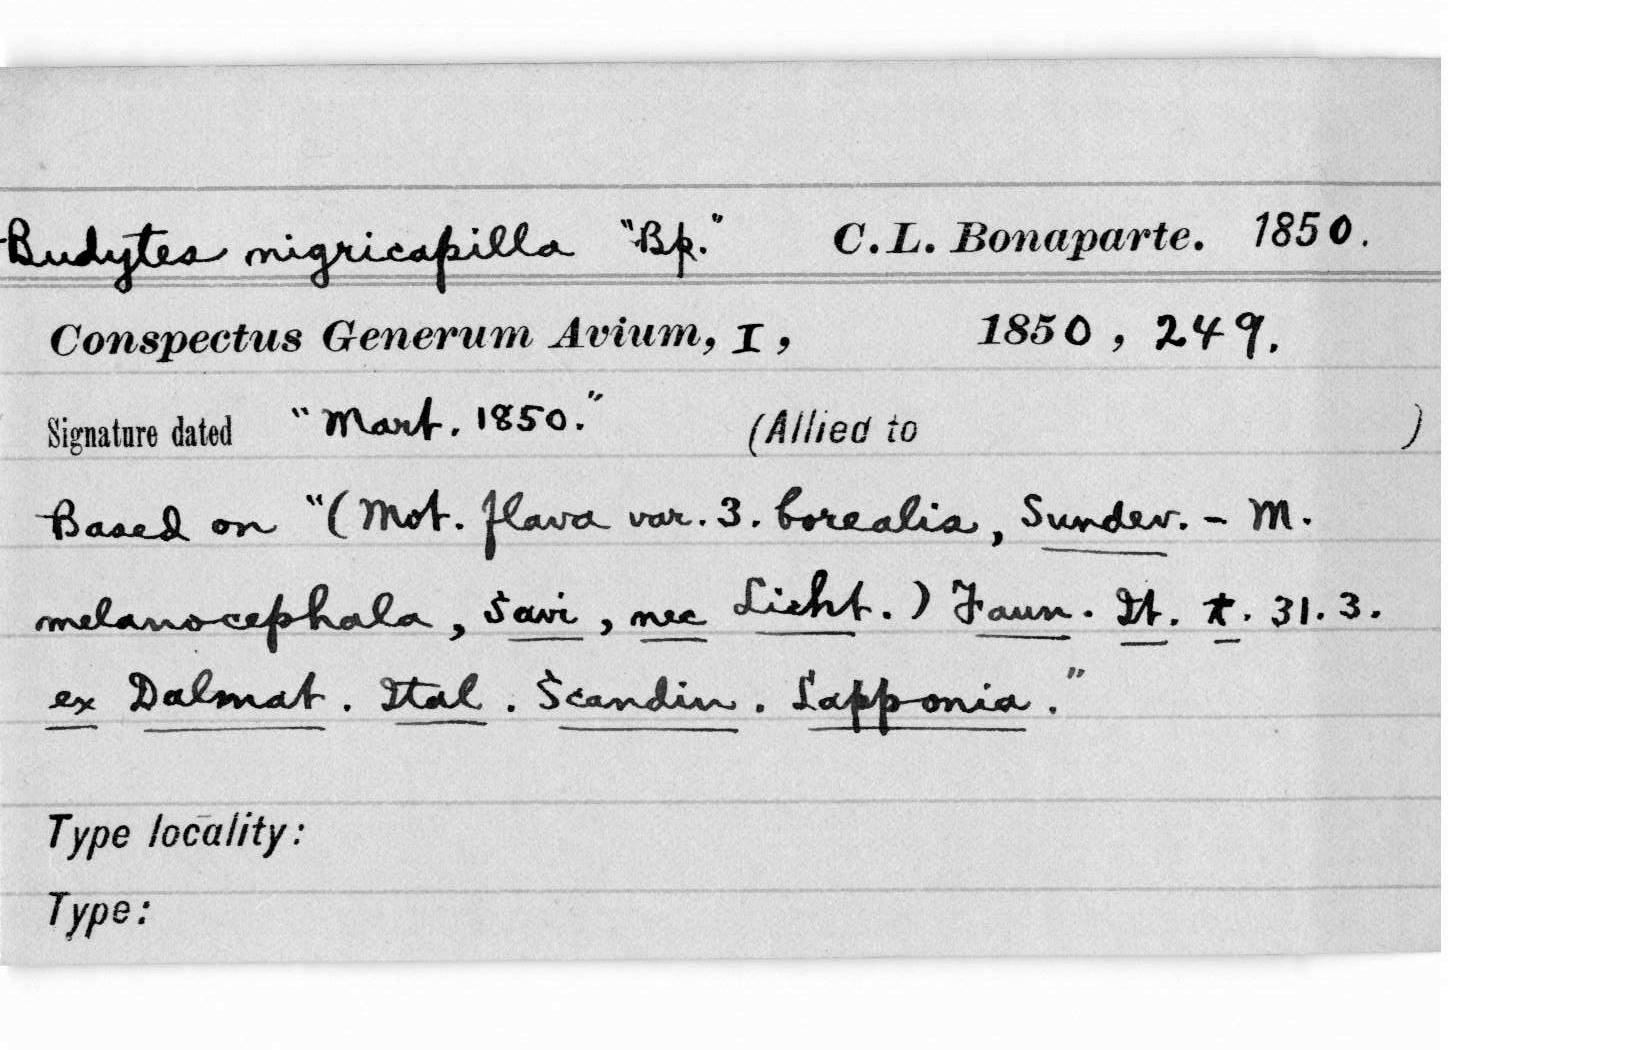 Budytes nigricapilla "Bp." C. L. Bonaparte. 1850.
Conspectus Generum Avium, I, 1850, 249.
Signature dated "Mart. 1850." (Allied to )
Based on "(Mot. flava var. 3. borealis, Sundev. - M.
melanocephala, Savi, nec Licht.) Faun. It. t. 31. 3.
ex Dalmat. Ital. Scandin. Lapponia."
Type locality:
Type: